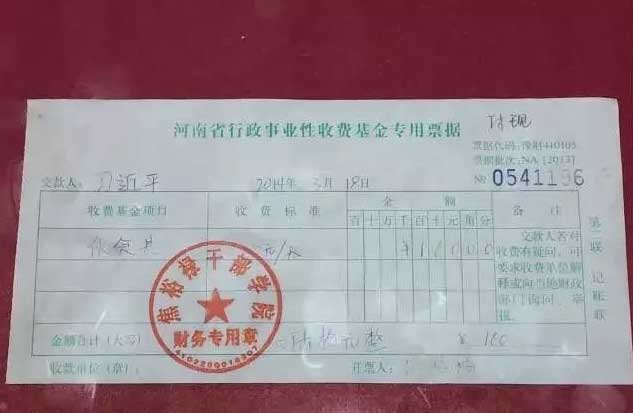 付现
河南省行政事业性收费基金专用票据
票据代码：豫财410105
票据批次：NA[2013]
交款人：习近平 2014年3月18日 № 0541196
收费基金项目 收费标准 金额 备注
百十万千百十元角分
伙食费 元/天 ¥16000
交款人若对收费有疑问，可要求收费单位解释或向当地财政部门询问、举报。
第二联 记账联
焦裕禄干部学院
财务专用章
金额合计（大写） 陆拾元整 ¥ 160
收款单位（章）： 开票人：